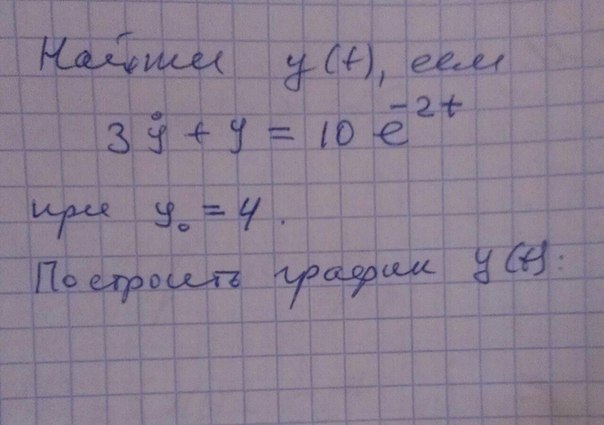 Найти y(t), если
3ẏ + y = 10 e^{-2t}
при y₀ = 4.
Построить график y(t).